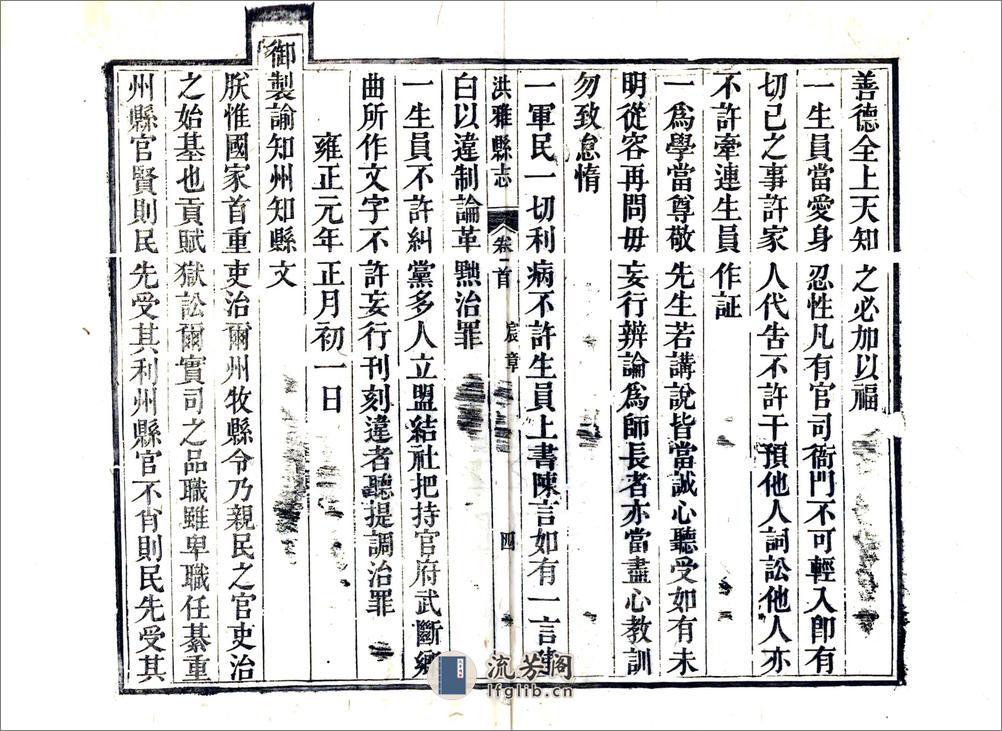 善德全上天知之必加以福
一生員當愛身忍性凡有官司衙門不可輕入卽有
切己之事許家人代告不許干預他人詞訟他人亦
不許牽連生員作証
一爲學當尊敬先生若講說皆當誠心聽受如有未
明從容再問毋妄行辨論爲師長者亦當盡心教訓
勿致怠惰
一軍民一切利病不許生員上書陳言如有一言建
洪雅縣志 卷首 宸章 四
白以違制論革黜治罪
一生員不許糾黨多人立盟結社把持官府武斷鄉
曲所作文字不許妄行刊刻違者聽提調治罪
雍正元年正月初一日
御製諭知州知縣文
朕惟國家首重吏治爾州牧縣令乃親民之官吏治
之始基也貢賦獄訟爾實司之品職雖卑職任綦重
州縣官賢則民先受其利州縣官不肖則民先受其
流芳閣
lfglib.cn